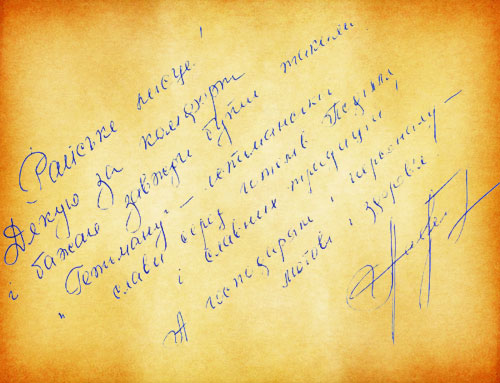 Райське місце!
Дякую за комфорт
і бажаю завжди бути такими.
"Гетьману" – гетьманської
слави серед готелів Поділля
і славних традицій!
А господарям і персоналу –
любові і здоров'я